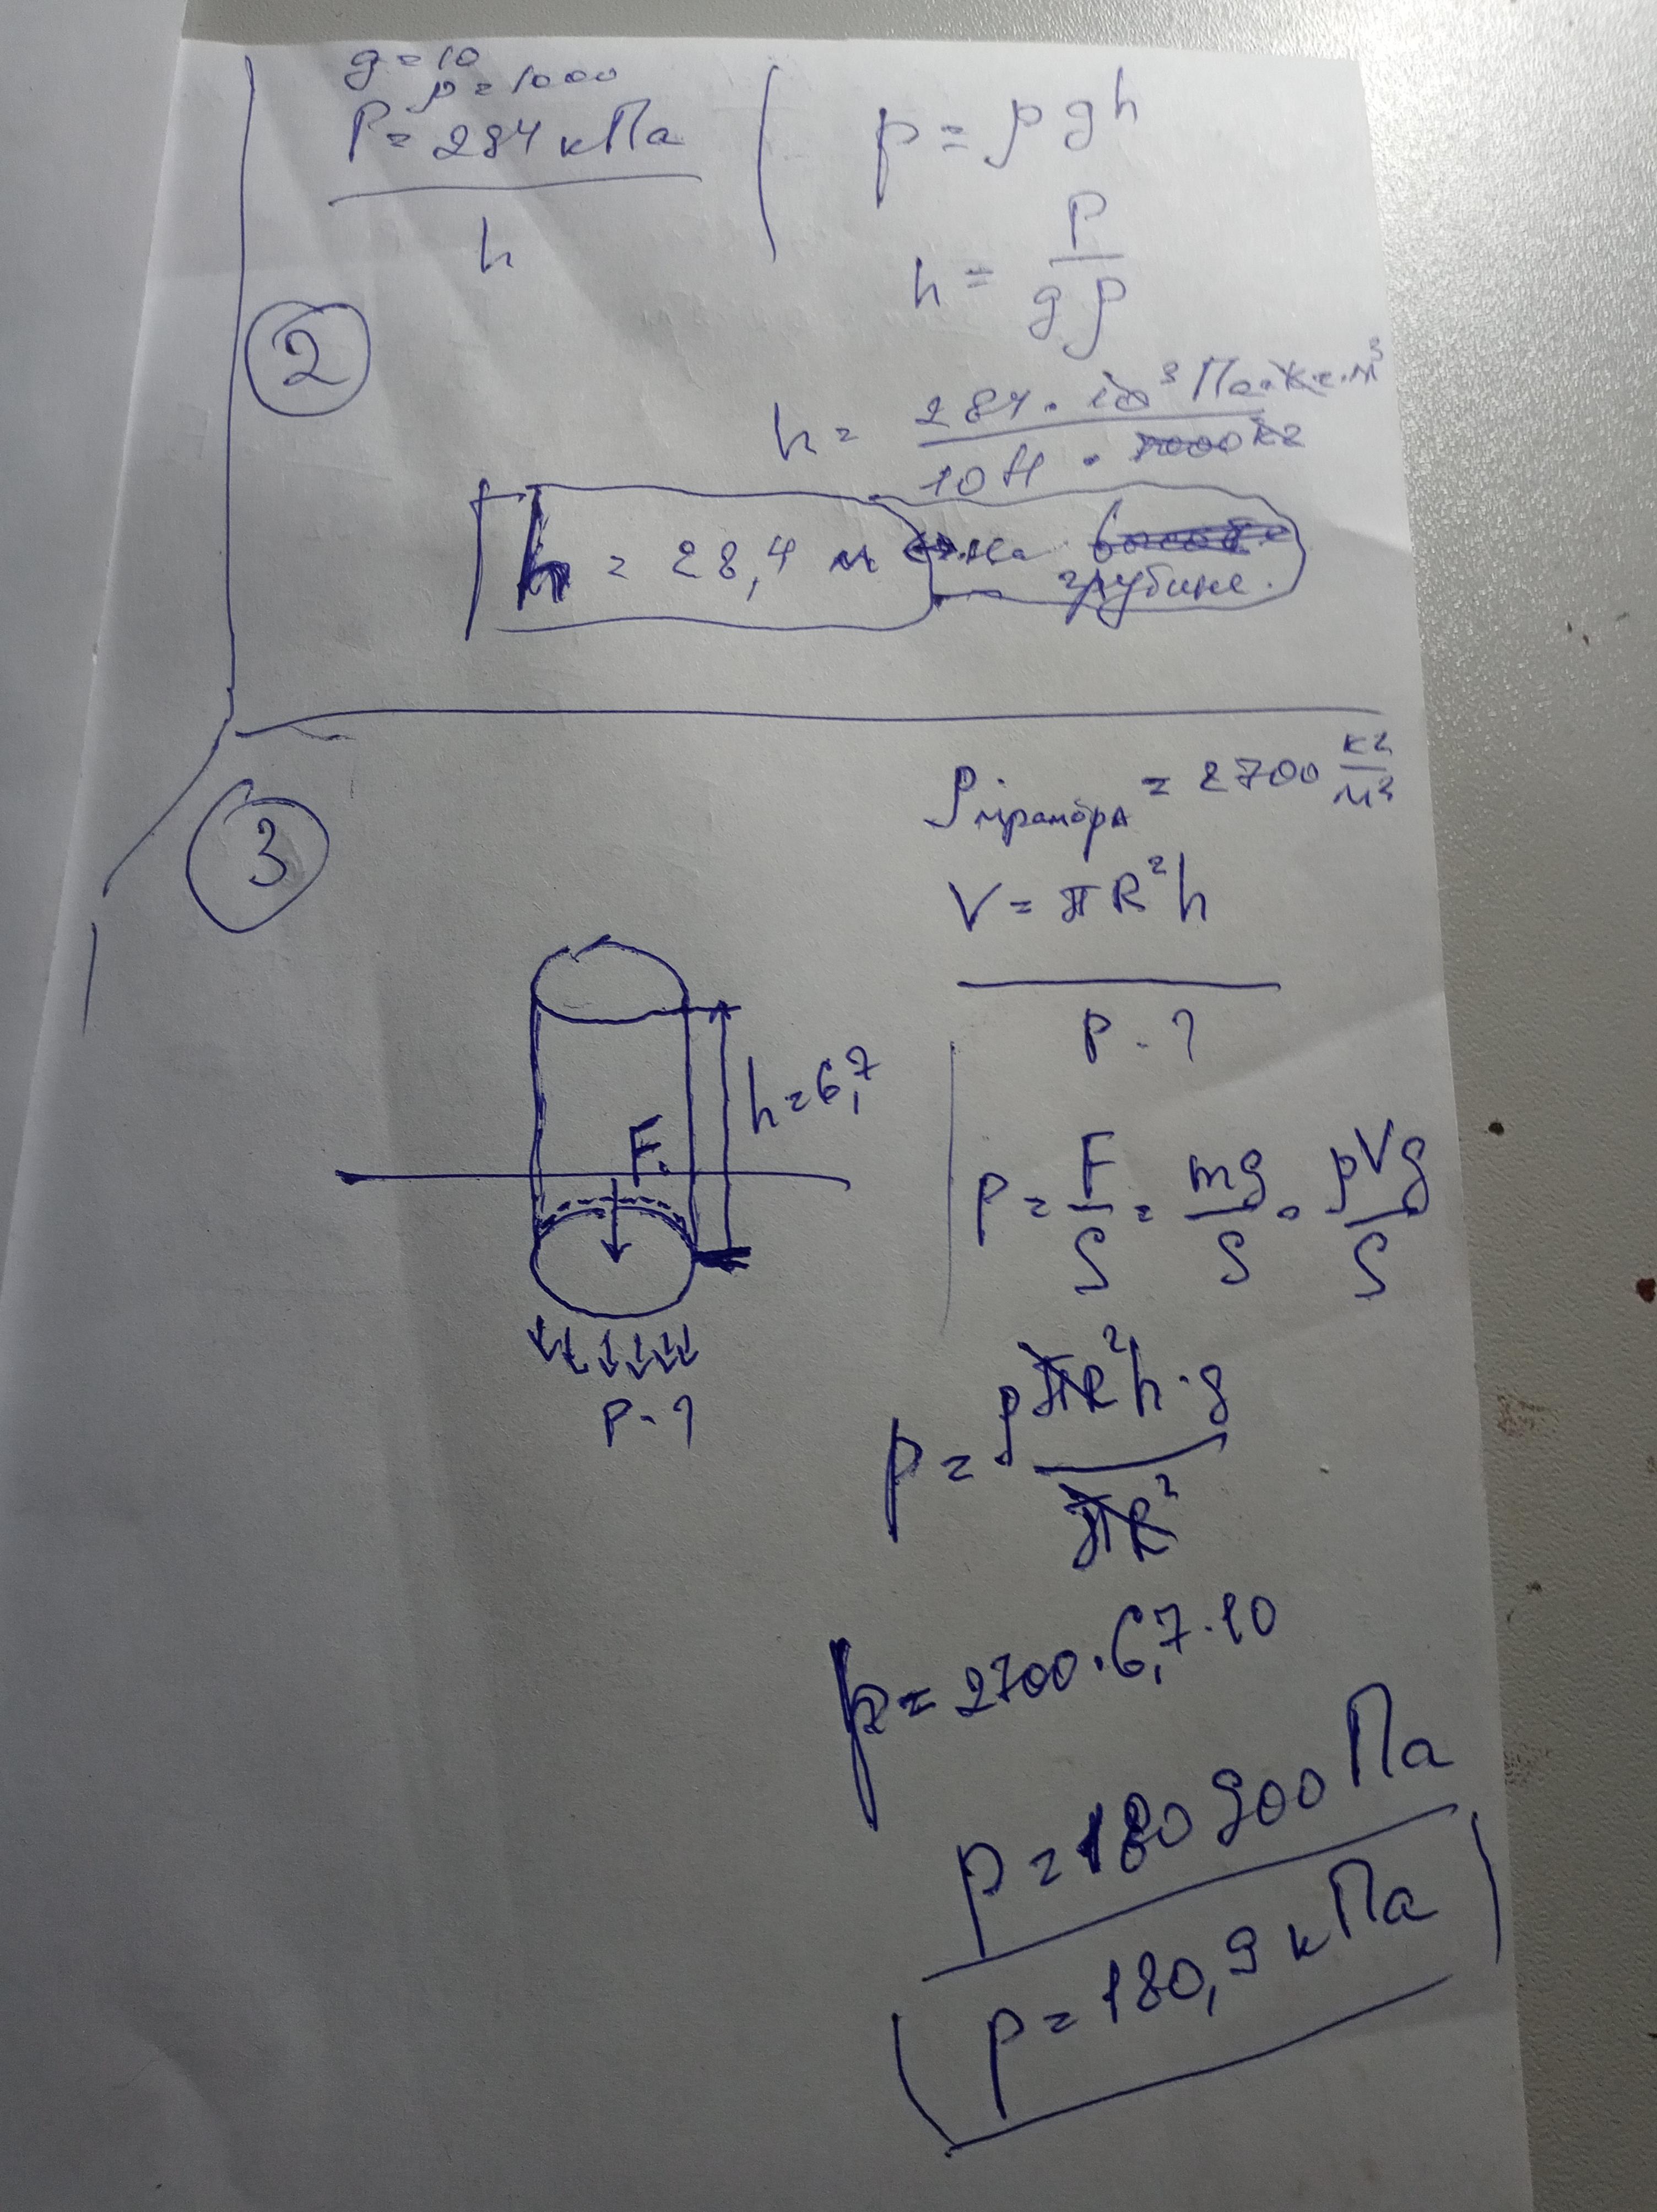 g = 10
ρ = 1000
P = 284 кПа
h
p = ρgh
h = P / gρ
2
h = 284 · 10³ Па · кг · м³ / 10 Н · 1000 кг
h = 28,4 м на
глубине.
3
ρ мрамора = 2700 кг/м³
V = πR²h
P - ?
h = 6,7
F
P = F/S = mg/S = ρVg/S
P - ?
p = ρπR²h·g / πR²
p = 2700 · 6,7 · 10
p = 180 900 Па
p = 180,9 кПа